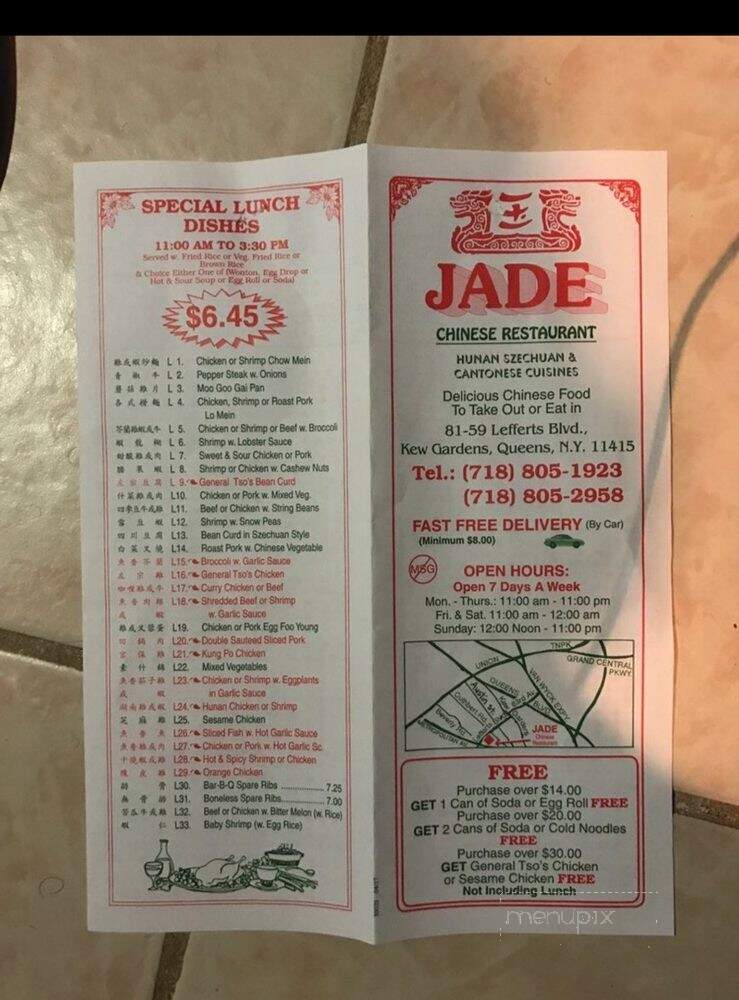 SPECIAL LUNCH
DISHES
11:00 AM TO 3:30 PM
Served w. Fried Rice or Veg. Fried Rice or
Brown Rice
& Choice Either One of (Wonton, Egg Drop or
Hot & Sour Soup or Egg Roll or Soda)
$6.45
雞或蝦炒麵 L 1. Chicken or Shrimp Chow Mein
青椒牛 L 2. Pepper Steak w. Onions
蘑菇雞片 L 3. Moo Goo Gai Pan
各式撈麵 L 4. Chicken, Shrimp or Roast Pork
Lo Mein
芥蘭雞蝦或牛 L 5. Chicken or Shrimp or Beef w. Broccoli
蝦龍糊 L 6. Shrimp w. Lobster Sauce
甜酸雞或肉 L 7. Sweet & Sour Chicken or Pork
腰果蝦 L 8. Shrimp or Chicken w. Cashew Nuts
左宗豆腐 L 9. General Tso's Bean Curd
什菜雞或肉 L10. Chicken or Pork w. Mixed Veg.
四季豆牛或雞 L11. Beef or Chicken w. String Beans
雪豆蝦 L12. Shrimp w. Snow Peas
四川豆腐 L13. Bean Curd in Szechuan Style
白菜叉燒 L14. Roast Pork w. Chinese Vegetable
魚香芥蘭 L15. Broccoli w. Garlic Sauce
左宗雞 L16. General Tso's Chicken
咖喱雞或牛 L17. Curry Chicken or Beef
魚香肉 L18. Shredded Beef or Shrimp
或蝦 w. Garlic Sauce
雞或叉蓉蛋 L19. Chicken or Pork Egg Foo Young
回鍋肉 L20. Double Sauteed Sliced Pork
宮保雞 L21. Kung Po Chicken
素什錦 L22. Mixed Vegetables
魚香茄子雞 L23. Chicken or Shrimp w. Eggplants
或蝦 in Garlic Sauce
湖南雞或蝦 L24. Hunan Chicken or Shrimp
芝麻雞 L25. Sesame Chicken
魚香魚 L26. Sliced Fish w. Hot Garlic Sauce
魚香雞或肉 L27. Chicken or Pork w. Hot Garlic Sc.
干燒蝦或雞 L28. Hot & Spicy Shrimp or Chicken
陳皮雞 L29. Orange Chicken
排骨 L30. Bar-B-Q Spare Ribs .............. 7.25
無骨排 L31. Boneless Spare Ribs.............. 7.00
苦瓜牛或雞 L32. Beef or Chicken w. Bitter Melon (w. Rice)
蝦仁 L33. Baby Shrimp (w. Egg Rice)
玉
JADE
CHINESE RESTAURANT
HUNAN SZECHUAN &
CANTONESE CUISINES
Delicious Chinese Food
To Take Out or Eat in
81-59 Lefferts Blvd.,
Kew Gardens, Queens, N.Y. 11415
Tel.: (718) 805-1923
(718) 805-2958
FAST FREE DELIVERY (By Car)
(Minimum $8.00)
MSG
OPEN HOURS:
Open 7 Days A Week
Mon. - Thurs.: 11:00 am - 11:00 pm
Fri. & Sat. 11:00 am - 12:00 am
Sunday: 12:00 Noon - 11:00 pm
UNION
TNPK.
GRAND CENTRAL
PKWY.
QUEENS
BLVD.
VAN WYCK EXPY.
Austin St.
Cuthbert Rd.
Beverly Rd.
Kew Gardens
METROPOLITAN AV.
JADE
Chinese
Restaurant
FREE
Purchase over $14.00
GET 1 Can of Soda or Egg Roll FREE
Purchase over $20.00
GET 2 Cans of Soda or Cold Noodles
FREE
Purchase over $30.00
GET General Tso's Chicken
or Sesame Chicken FREE
Not Including Lunch
menupix